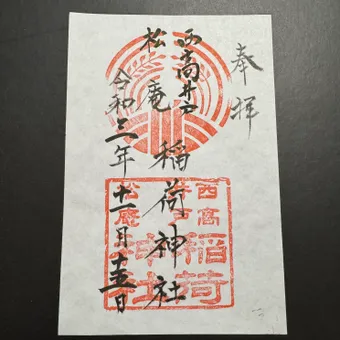 奉拝
西高井戸
松庵 稲荷神社
令和三年十一月十五日
西高
井戸
松庵
稲荷
神社